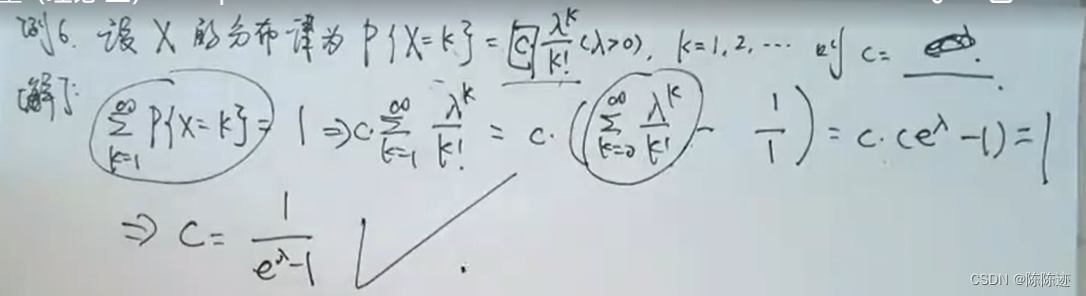 例6. 设 X 的分布律为 P{X=k} = C λ^k/k! (λ>0), k=1,2,… 则 C= ____.
解:
∑_{k=1}^{∞} P{X=k} = 1 ⇒ C·∑_{k=1}^{∞} λ^k/k! = C·(∑_{k=0}^{∞} λ^k/k! - 1/1) = C·(e^λ -1) = 1
⇒ C = 1/(e^λ-1)
CSDN @陈陈迹